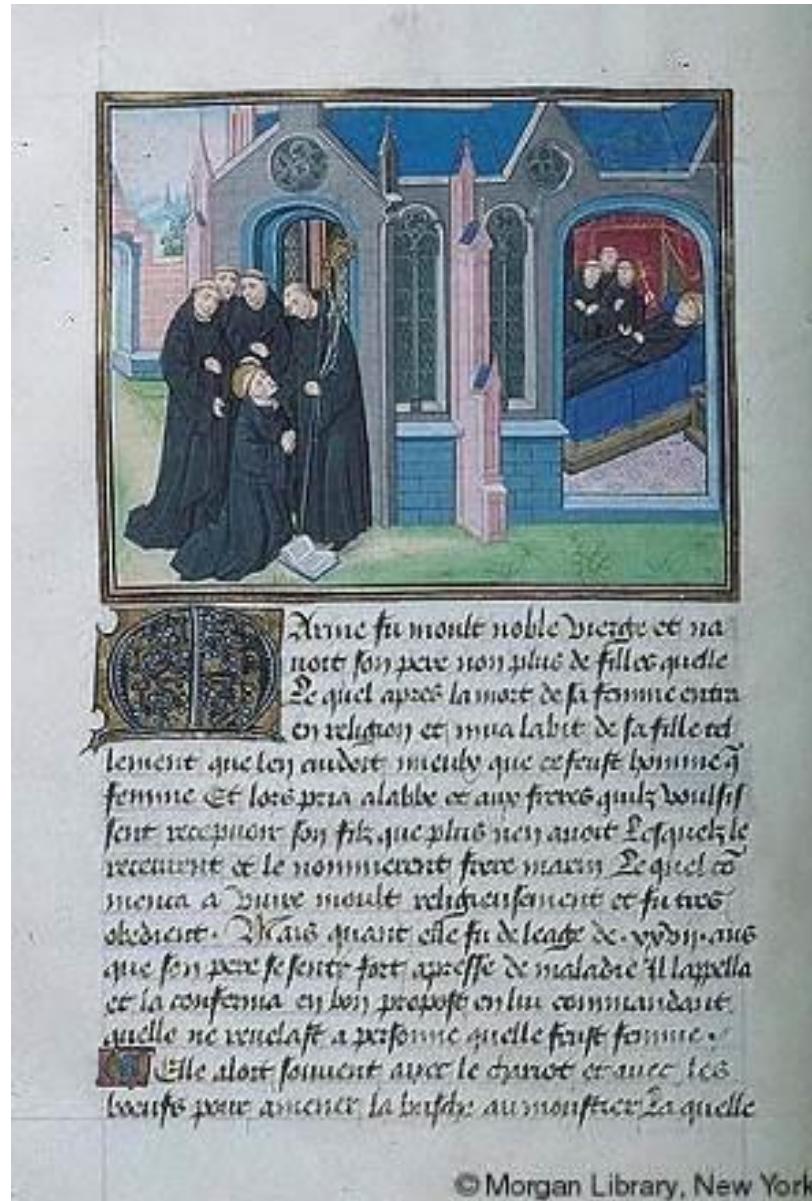 Marine fu moult noble vierge et na
uoit son pere non plus de filles quelle
Le quel apres la mort de sa femme entra
en religion et mua labit de sa fille tel
lement que len cuidoit mieulx que ce feust homme q̄
femme Et lors pria alabbe et aux freres quilz voulsis
sent recepuoir son filz que plus nen auoit Lesquelz le
receurent et le nommerent frere marin Le quel cō
menca a viure moult religieusement et fu tres
obedient. Mais quant elle fu de leage de .xxvii. ans
que son pere se senti fort apresse de maladie Il lappella
et la conferma en bon propost en lui commandant
quelle ne reuelast a personne quelle feust femme.
Elle aloit souuent auec le chariot et auec les
boeufs pour amener la busche au moustier La quelle
© Morgan Library, New York